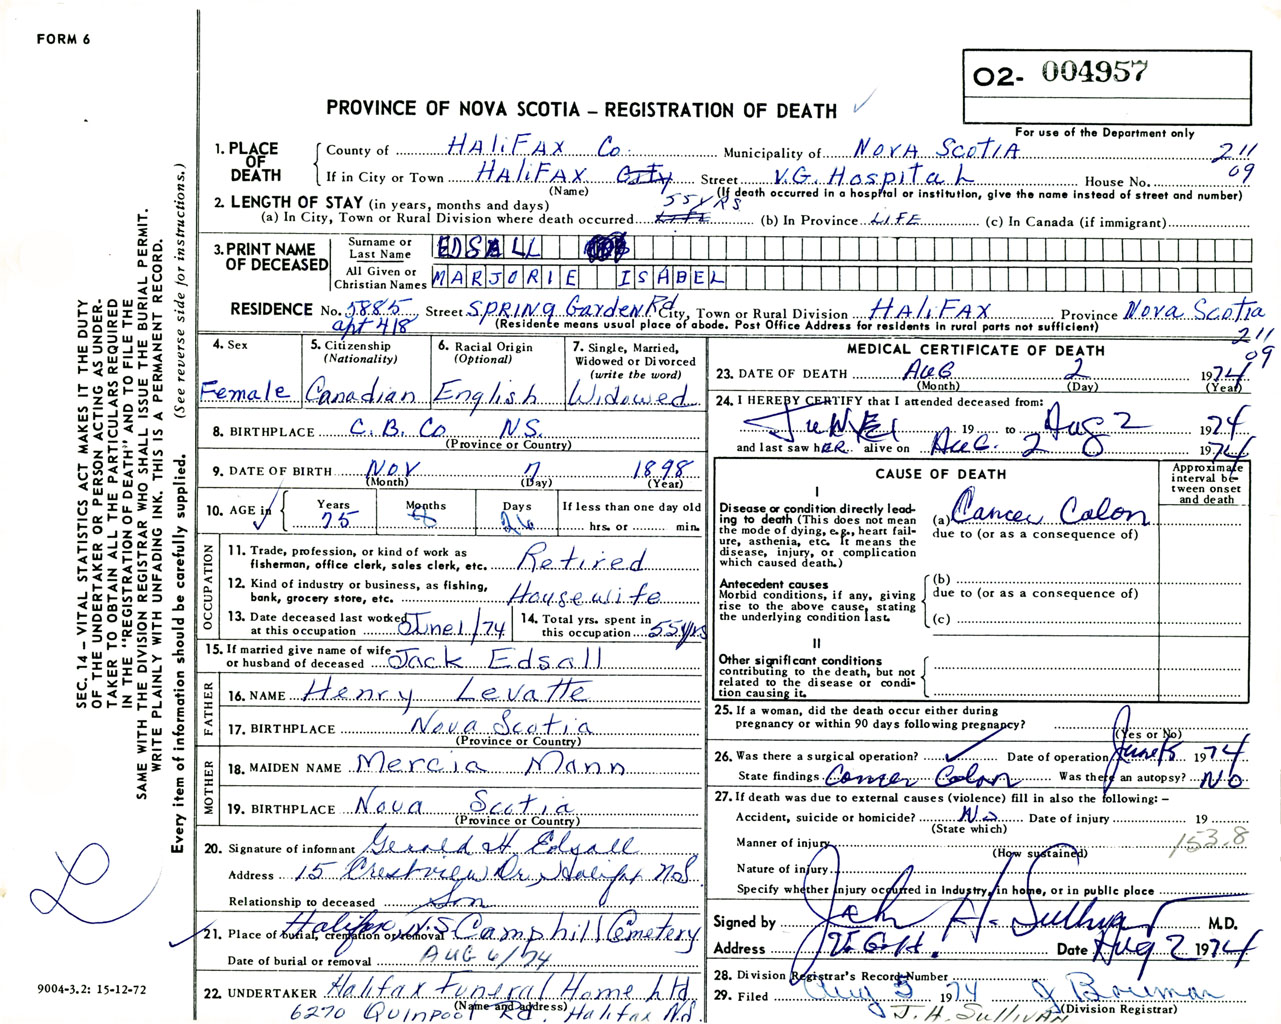 FORM 6
O2- 004957
PROVINCE OF NOVA SCOTIA – REGISTRATION OF DEATH
For use of the Department only
1. PLACE OF DEATH
County of HALIFAX Co. Municipality of NOVA SCOTIA 211
If in City or Town HALIFAX City Street V.G. HOSPITAL House No. 09
(Name) (If death occurred in a hospital or institution, give the name instead of street and number)
2. LENGTH OF STAY (in years, months and days) 55 YRS
(a) In City, Town or Rural Division where death occurred LIFE (b) In Province LIFE (c) In Canada (if immigrant)
3. PRINT NAME OF DECEASED
Surname or Last Name EDSALL
All Given or Christian Names MARJORIE ISABEL
RESIDENCE No. 5885 Street SPRING Garden Rd City, Town or Rural Division HALIFAX Province NOVA SCOTIA
apt 418 (Residence means usual place of abode. Post Office Address for residents in rural parts not sufficient) 211
09
4. Sex Female
5. Citizenship (Nationality) Canadian
6. Racial Origin (Optional) English
7. Single, Married, Widowed or Divorced (write the word) Widowed
8. BIRTHPLACE C.B. Co N.S.
(Province or Country)
9. DATE OF BIRTH NOV 7 1898
(Month) (Day) (Year)
10. AGE in Years 75 Months 8 Days 26 If less than one day old hrs. or min.
OCCUPATION
11. Trade, profession, or kind of work as fisherman, office clerk, sales clerk, etc. Retired
12. Kind of industry or business, as fishing, bank, grocery store, etc. Housewife
13. Date deceased last worked at this occupation June 1/74
14. Total yrs. spent in this occupation 55 yrs
15. If married give name of wife or husband of deceased Jack Edsall
FATHER
16. NAME Henry Levatte
17. BIRTHPLACE Nova Scotia
(Province or Country)
MOTHER
18. MAIDEN NAME Mercia Mann
19. BIRTHPLACE Nova Scotia
(Province or Country)
20. Signature of informant Gerald H. Edsall
Address 15 Crestview Dr., Halifax N.S.
Relationship to deceased Son
21. Place of burial, cremation or removal Halifax, N.S Camphill Cemetery
Date of burial or removal AUG 6/74
22. UNDERTAKER Halifax Funeral Home Ltd
(Name and address)
6270 QUINPOOL Rd. Halifax N.S.
MEDICAL CERTIFICATE OF DEATH
23. DATE OF DEATH AUG 2 1974
(Month) (Day) (Year)
24. I HEREBY CERTIFY that I attended deceased from:
JUNE 19 to Aug 2 1974
and last saw hER alive on AUG. 2 1974
CAUSE OF DEATH
Approximate interval between onset and death
I
Disease or condition directly leading to death (This does not mean the mode of dying, e.g., heart failure, asthenia, etc. It means the disease, injury, or complication which caused death.)
(a) Cancer Colon
due to (or as a consequence of)
Antecedent causes
Morbid conditions, if any, giving rise to the above cause, stating the underlying condition last.
(b)
due to (or as a consequence of)
(c)
II
Other significant conditions contributing to the death, but not related to the disease or condition causing it.
25. If a woman, did the death occur either during pregnancy or within 90 days following pregnancy?
(Yes or No)
26. Was there a surgical operation? ✓ Date of operation June 1974
State findings Cancer Colon Was there an autopsy? NO
27. If death was due to external causes (violence) fill in also the following: –
Accident, suicide or homicide? No Date of injury 19
(State which)
Manner of injury 153.8
(How sustained)
Nature of injury
Specify whether injury occurred in Industry, in home, or in public place
Signed by John H. Sullivan M.D.
Address V.G.H. Date Aug 2 1974
28. Division Registrar's Record Number
29. Filed Aug 5 1974 J Bowman
J. H. SULLIVAN (Division Registrar)
SEC. 14 – VITAL STATISTICS ACT MAKES IT THE DUTY
OF THE UNDERTAKER OR PERSON ACTING AS UNDER-
TAKER TO OBTAIN ALL THE PARTICULARS REQUIRED
IN THE "REGISTRATION OF DEATH" AND TO FILE THE
SAME WITH THE DIVISION REGISTRAR WHO SHALL ISSUE THE BURIAL PERMIT.
WRITE PLAINLY WITH UNFADING INK. THIS IS A PERMANENT RECORD.
Every item of information should be carefully supplied. (See reverse side for instructions.)
9004-3.2: 15-12-72